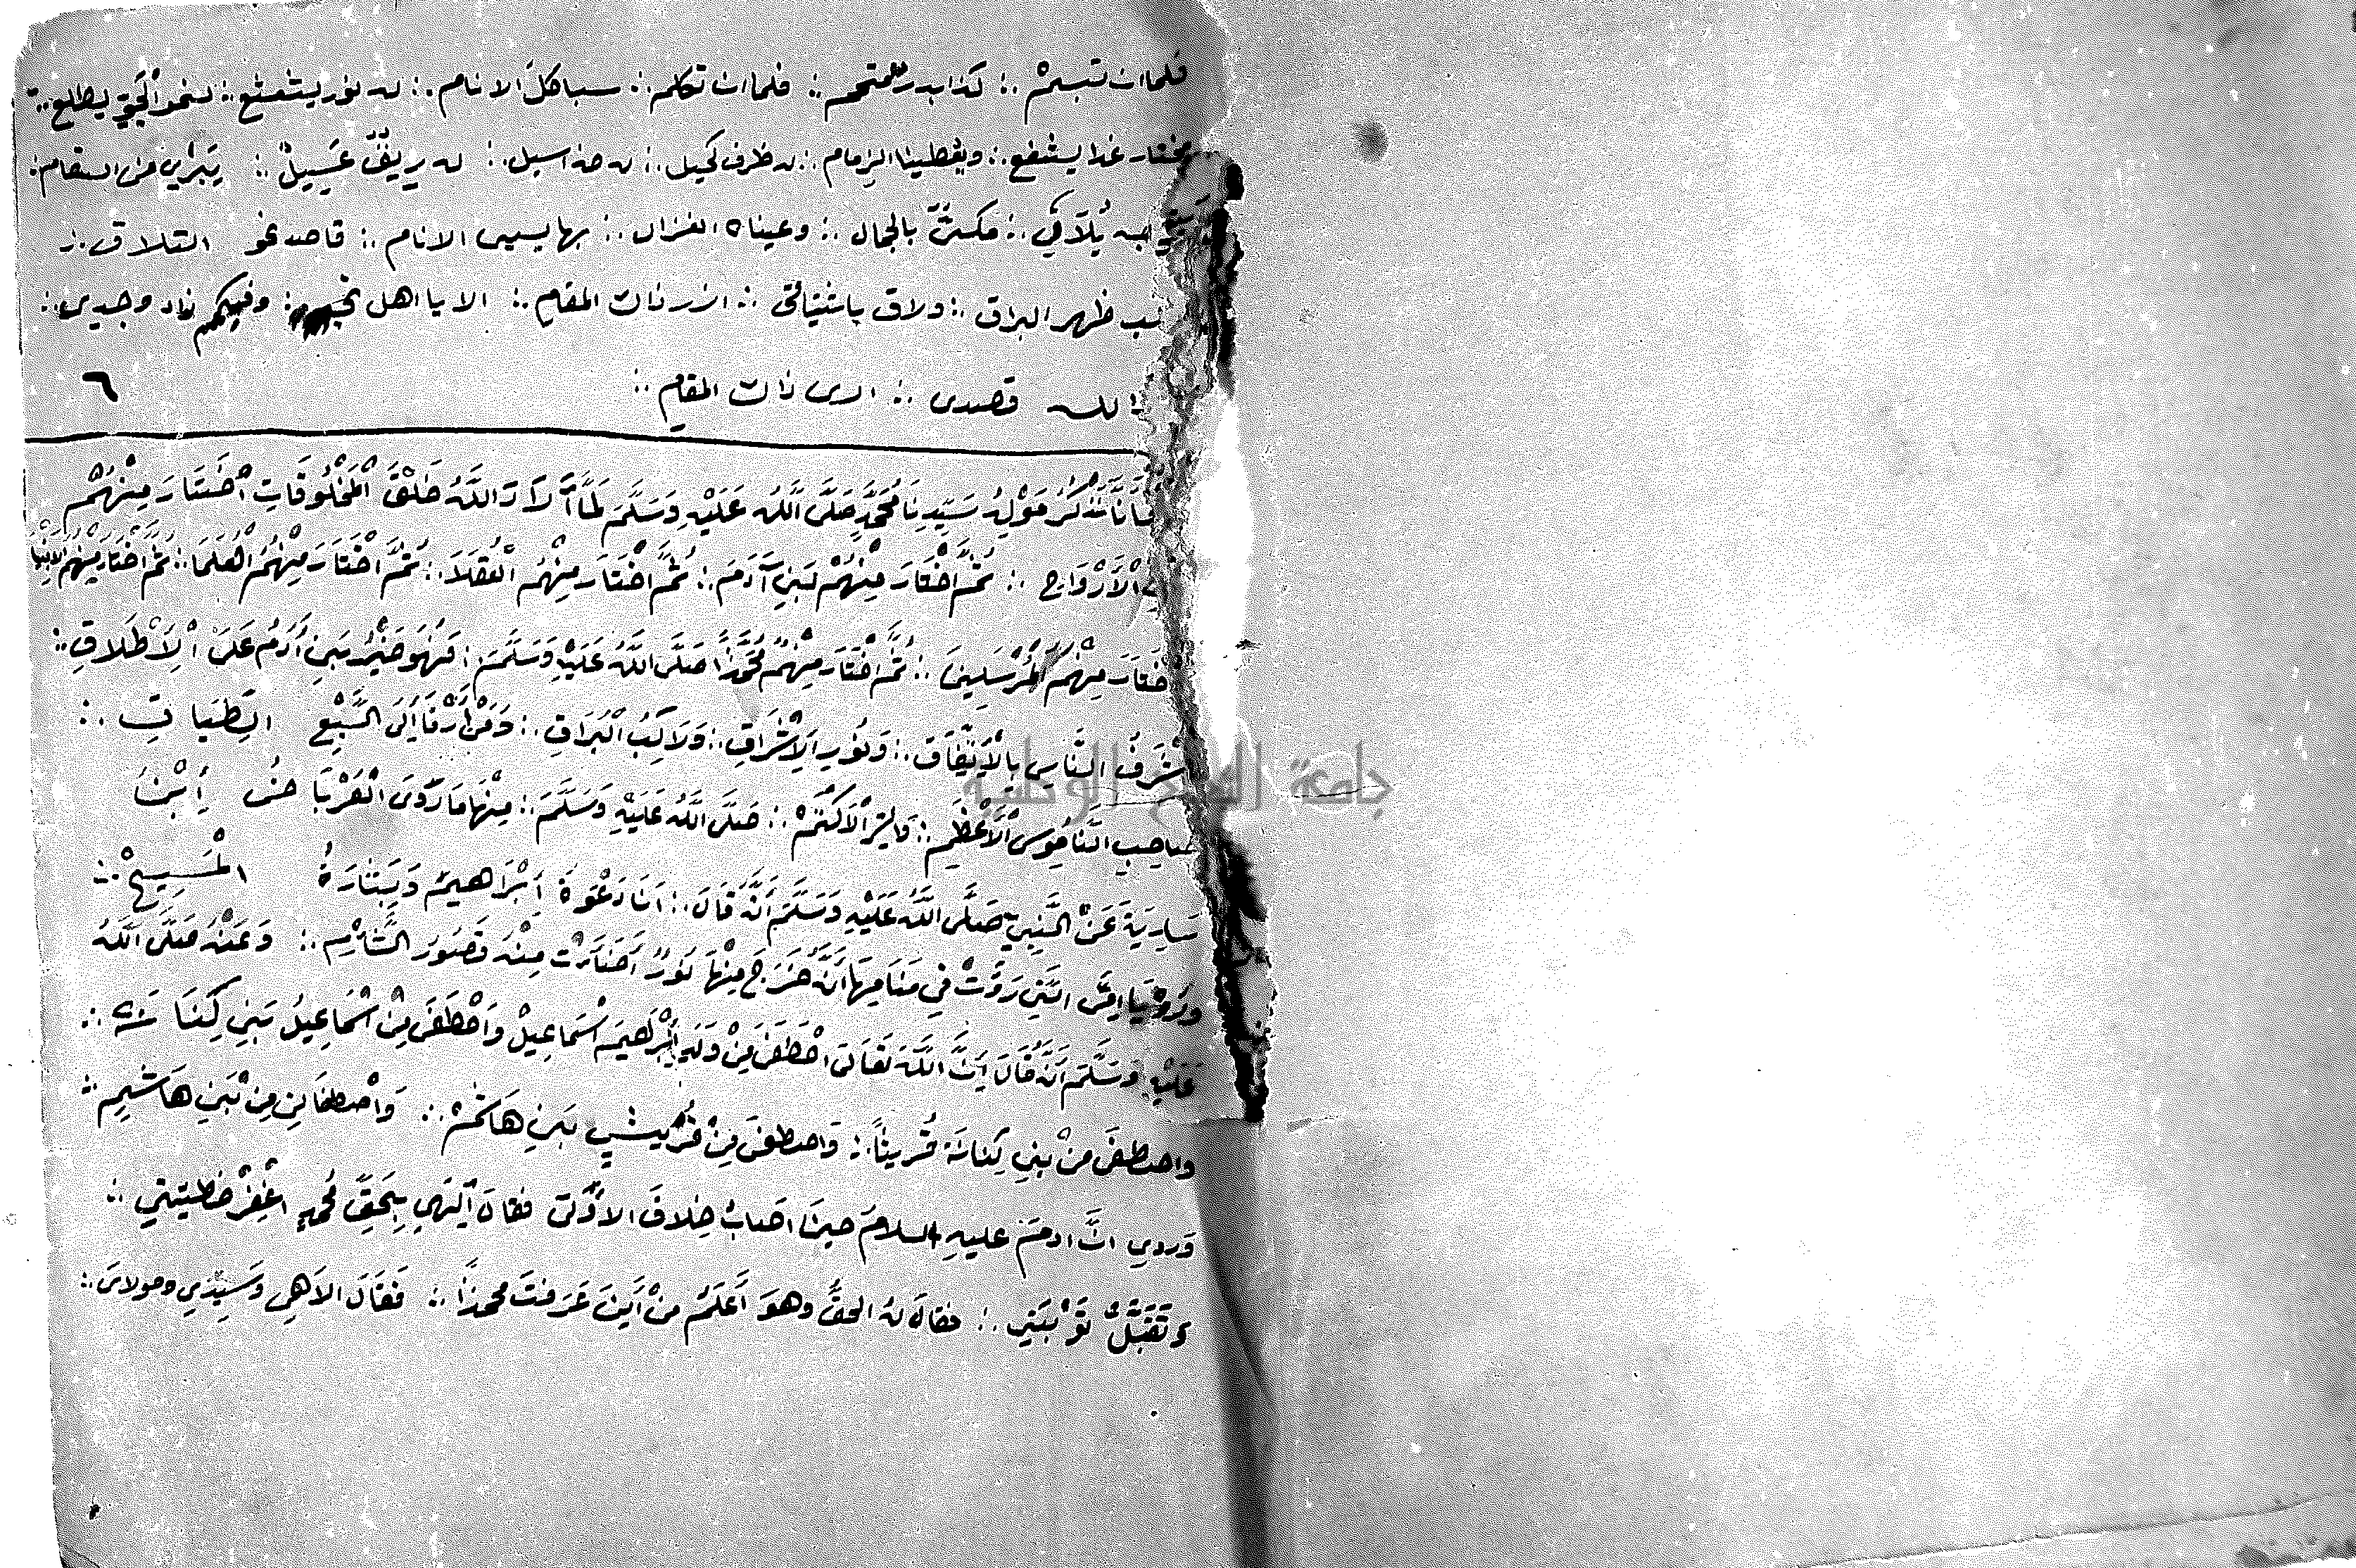 فلما ان تبسم ∴ كذا بدر متمم ∴ فلما ان تكلم ∴ سبا كل الانام ∴ له نور يشعشع ∴ لنحو الجو يطلع ∴
مختار غدا يشفع ∴ ويعطينا الزمام ∴ له طرف كحيل ∴ له خد اسيل ∴ له ريق عسيل ∴ يبري من السقام ∴
يلاقي ∴ مكسى بالجمال ∴ وعيناه الغزال ∴ بها يسبى الانام ∴ قاصد نحو التلاق ∴
ظهر البراق ∴ ولاق باشتياقى ∴ ازر ذات المقام ∴ الا يا اهل ∴ وفيكم زاد وجدي ∴
الله قصدى ∴ الى ذات المقام ∴ ٦
نَذْكُرُ مَوْلِدُ سَيِّدِنَا مُحَمَّدٍ صَلَّى اللَّهُ عَلَيْهِ وَسَلَّمَ لَمَّا أَرَادَ اللَّهُ خَلْقَ الْمَخْلُوقَاتِ اخْتَارَ مِنْهُمْ
الْأَرْوَاح ∴ ثُمَّ اخْتَارَ مِنْهُمْ بَنِي آدَمَ ∴ ثُمَّ اخْتَارَ مِنْهُم الْعُقَلَا ∴ ثُمَّ اخْتَارَ مِنْهُمُ الْعُلَمَا ∴ ثُمَّ اخْتَارَ مِنْهُمُ الانبيا
اخْتَارَ مِنْهُمُ الْمُرْسَلِينَ ∴ ثُمَّ اخْتَارَ مِنْهُمْ مُحَمَّدًا صَلَّى اللَّهُ عَلَيْهِ وَسَلَّمَ ∴ فَهُوَ خَيْرُ بَنِي أَدَمُ عَلَى الِاَطْلَاقِ ∴
اشْرَفُ النَّاسِ بِالْاِتِّفَاقِ ∴ وَنُورِ الْاِشْرَاقِ ∴ وَرَاكِبُ الْبُرَاقِ ∴ وَمَنْ أَرْقَا إِلَى السَّبْعِ الطِّبَاقِ ∴
صاحِبِ النَّامُوسِ الْأَعْظَمِ ∴ وَالسِّرِّ الْأَكْتَمْ ∴ صَلَّى اللَّهُ عَلَيْهِ وَسَلَّمَ ∴ مِنْهَا مَا رَوَى الْعُرْبَا ضُ اِبْنُ
سَارِيَةَ عَنْ النَّبِيِّ صَلَّى اللَّهُ عَلَيْهِ وَسَلَّمَ أَنَّهُ قَالَ ∴ اَنَا دَعْوَةُ اَبْرَاهِيمْ وَبِشَارَةُ الْمَسِيحْ ∴
وَرُؤْيَا امِّى الَّتِي رَؤَتْ فِي مَنَامِهَا أَنَّهُ خَرَجَ مِنْهَا نُورٌ أَضَاءَتْ مِنْهُ قُصُورُ الشَّامِ ∴ وَعَنْهُ صَلَّى اللَّهُ
عَلَيْهِ وَسَلَّمَ اَنَّهُ قَالَ اِنَّ اللَّهَ تَعَالَى اصْطَفَى مِنْ وَلَدِ اِبْرَاهِيمَ اسْمَاعِيلْ وَاصْطَفَى مِنْ اسْمَاعِيلُ بَنِي كِنَا نَه ∴
واصطفَى مِنْ بني كِنَانَة قُرَيشاً ∴ وَاصطفى مِنْ قُرَيْشٍ بَنِي هَاشِمْ ∴ وَاصطفانى مِنْ بَنِي هَاشِمٍ ∴
وَروي انَّ ادمَ عليهِ السلامَ حينَ اصَابُ خِلافَ الاَوْلَى فقالَ اِلَهِي بِحَقِّ مُحَمدٍ اغْفِرْ خطيتتي ∴
وَتَقَبَّلْ تَوْبَتِي ∴ فقالَ لهُ الحقُّ وهوَ أَعْلَمُ مِنْ أَينَ عَرَفتَ محمدًا ∴ فَقَالَ الاَهِي وَسَيِّدِي ومولايَ ∴